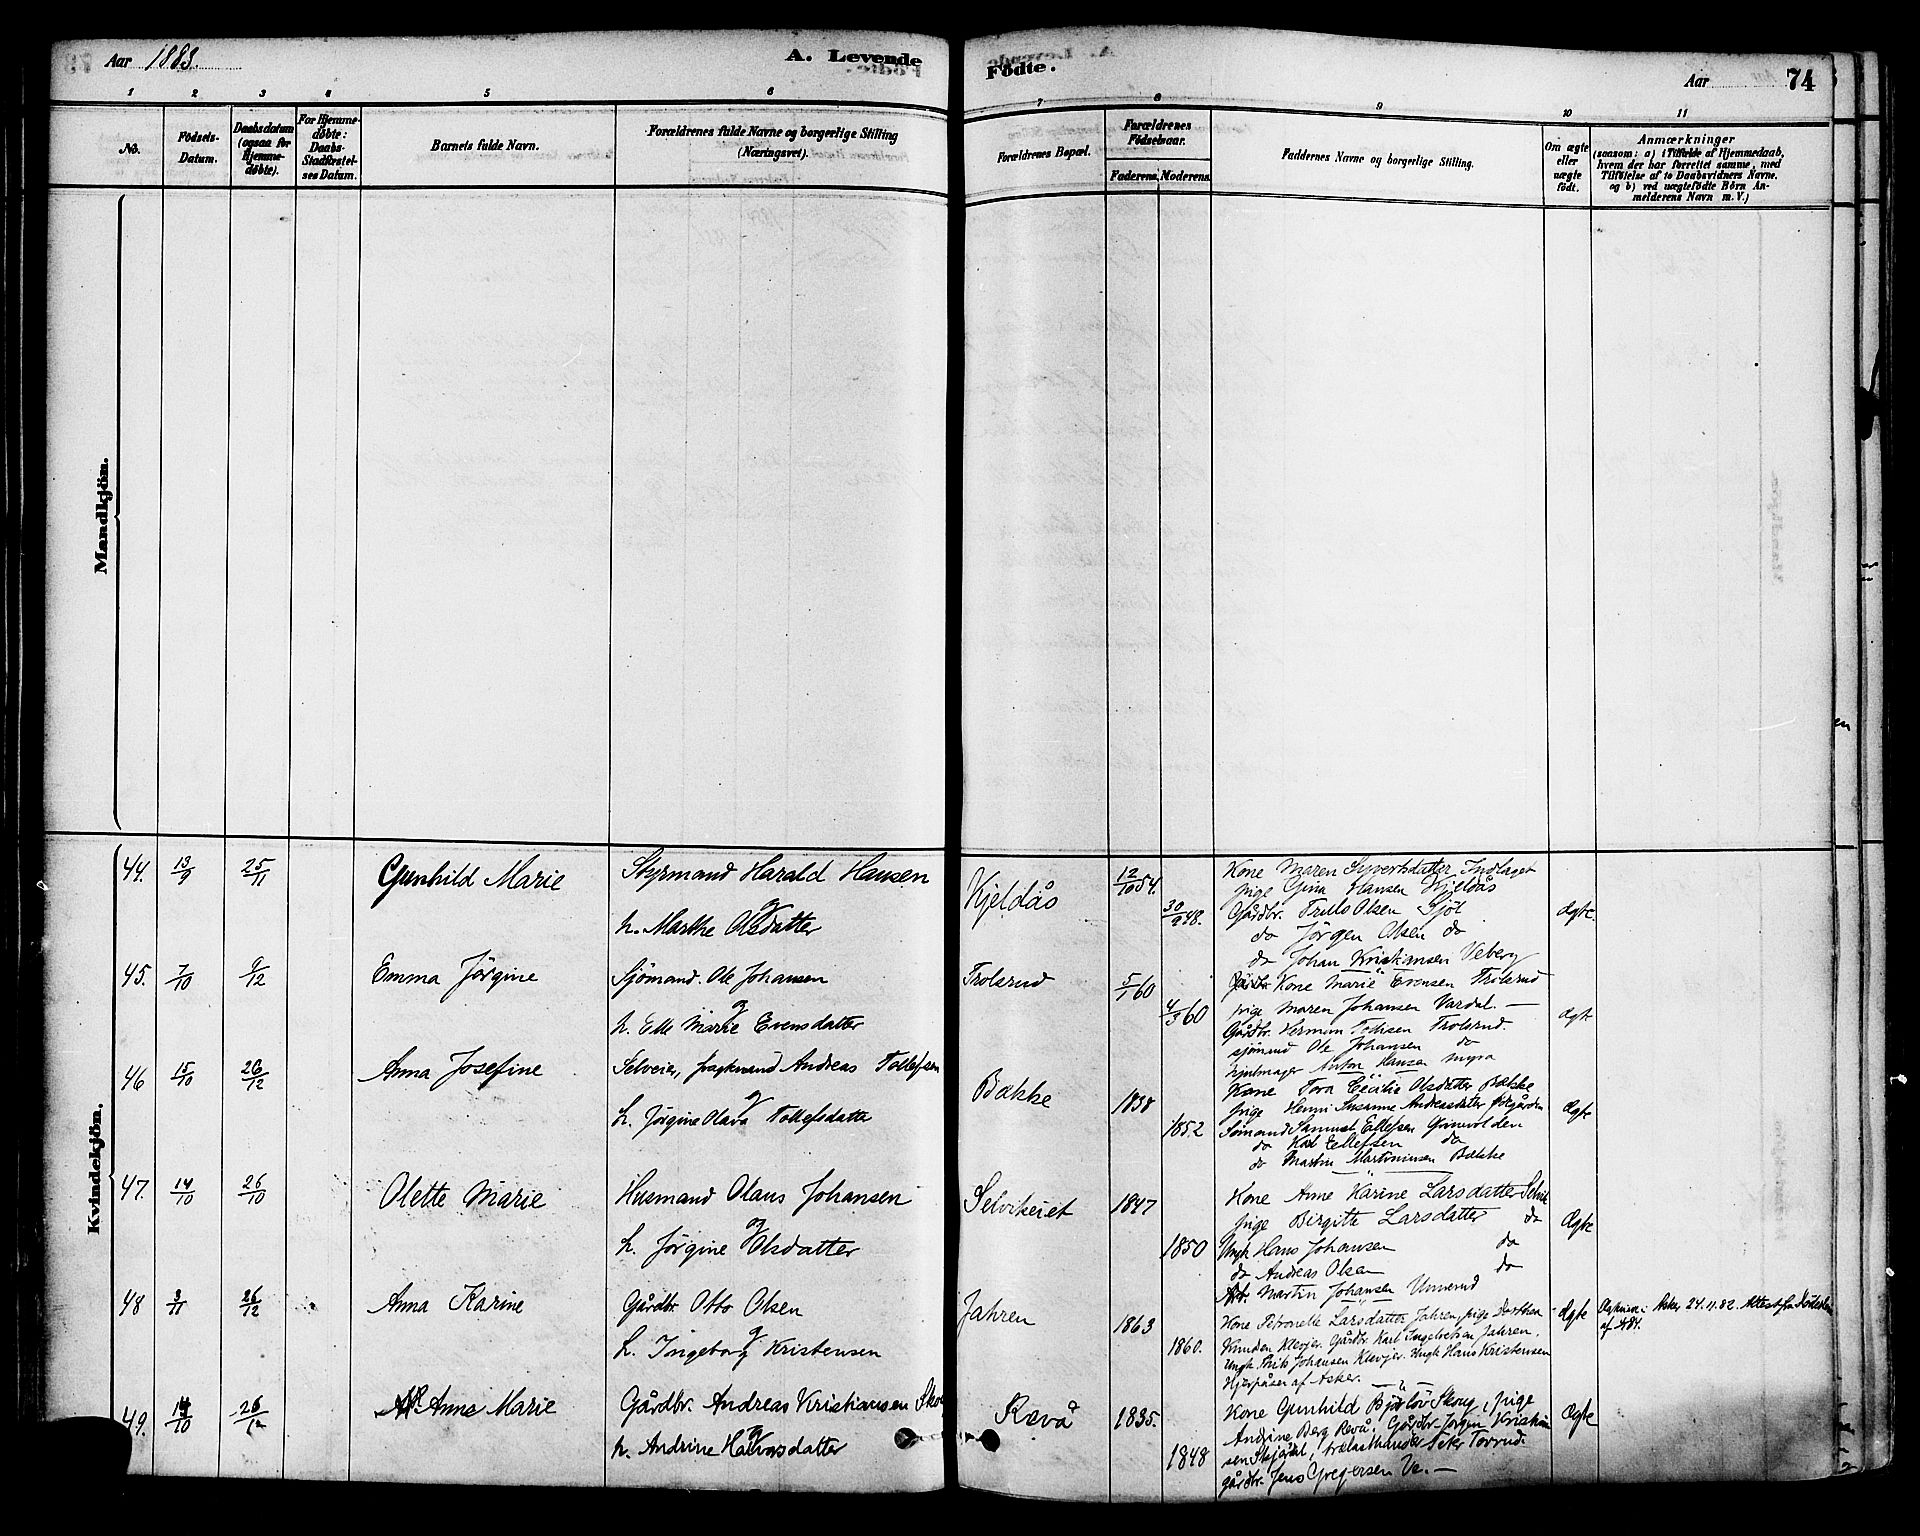 Aar 1883.
A. Levende
Födte.
Aar 74
1 2 3 4 5 6 7 8 9 10 11
No.
Födsels-
Datum.
Daabsdatum
(ogsaa for
Hjemme-
döbte).
For Hjemme-
döbte:
Daabs-
Stadfæstel-
ses Datum.
Barnets fulde Navn.
Forældrenes fulde Navne og borgerlige Stilling
(Næringsvei).
Forældrenes Bopæl.
Forældrenes
Födselsaar.
Faderens. Moderens.
Faddernes Navne og borgerlige Stilling.
Om ægte
eller
uægte
födt.
Anmærkninger
(saasom: a) i Tilfælde af Hjemmedaab,
hvem der har forrettet samme, med
Tilföielse af to Daabsvidners Navne.
og b) ved uægtefödte Börn An-
melderens Navn m. V.)
Mandkjön.
Kvindekjön.
44. 13/9 25/11 Gunhild Marie
Styrmand Harald Hansen
og
h. Marthe Olsdatter
Kjeldås 12/10 54. 30/9 48.
Kone Maren Syvertsdatter Indlaget
pige Gina Hansen Kjeldås
Gårdbr. Truls Olsen Sjöl
do Jörgen Olsen do
do Johan Kristiansen Veberg
Ægte.
45. 7/10 9/12 Emma Jörgine
Sjömand. Ole Johansen
og
h. Elle Marie Evensdatter
Trolsrud 5/1 60 4/3 60
Kone Marie Evensen Trolsrud
pige Maren Johansen Vardal. —
Gårdbr. Herman Trolsrud.
sjömnd Ole Johansen do
hjulmager Anton Hansen myra
Ægte
46 15/10 26/12 Anna Josefine
Selveier, Andreas Tollefsen
og
h. Jörgine Olava Tollefsdatter
Bække 1838 1852
Kone Tora Cecilie Olsdatter Bække
pige Henni Susanne Andreasdatter
Sömand Samuel Ellefsen Grinvolden
do Karl Ellefsen do
do Martin Martininsen Bække
Ægte
47. 14/10 26/10 Olette Marie
Husmand Olaus Johansen
og
h. Jörgine Olsdatter
Selvikeiet 1847 1850
Kone Anne Karine Larsdatter Selvik
pige Birgitte Larsdatter do
Ungk Hans Johansen do
do Andreas Olsen do
Arb. Martin Johansen Unnerud
Ægte
48 3/11 26/12 Anna Karine
Gårdbr. Otto Olsen
og
h. Ingeborg Kristensen
Jahren 1863 1860.
Kone Petronelle Larsdatter Jahren, pige Dorthea
Knudsen Klevjer. Gårdbr. Karl Ingebretsen Jahren.
Ungk Johansen Klevjer. Ungk Hans Kristensen
af Asker.
Ægte
Asker 24.11.82. Attest fra
49. 14/10 26/12 Anna Marie
Gårdbr. Andreas Kristiansen Skoug
og
h. Andrine Halvorsdatter
Revå 1835. 1848
Kone Gunhild Skoug, Pige
Andrine Berg Revå. Gårdbr. Jörgen Kristian
sen trælasthandler Peter Tovrud.
gårdbr. Jens Gregersen Ve. —
Ægte